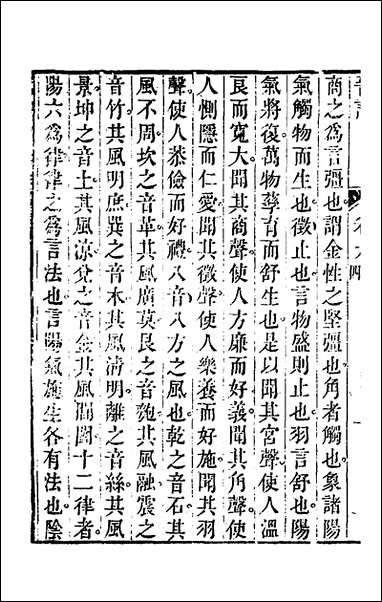 商之爲言彊也謂金性之堅彊也角者觸也象諸陽
氣觸物而生也徵止也言物盛則止也羽言舒也陽
氣將復萬物孳育而舒生也是以聞其宮聲使人溫
良而寬大聞其商聲使人方廉而好義聞其角聲使
人惻隱而仁愛聞其徵聲使人樂養而好施聞其羽
聲使人恭儉而好禮八音八方之風也乾之音石其
風不周坎之音革其風廣莫艮之音匏其風融震之
音竹其風明庶巽之音木其風清明離之音絲其風
景坤之音土其風涼兌之音金其風閶闔十二律者
陽六爲律律之爲言法也言陽氣施生各有法也陰